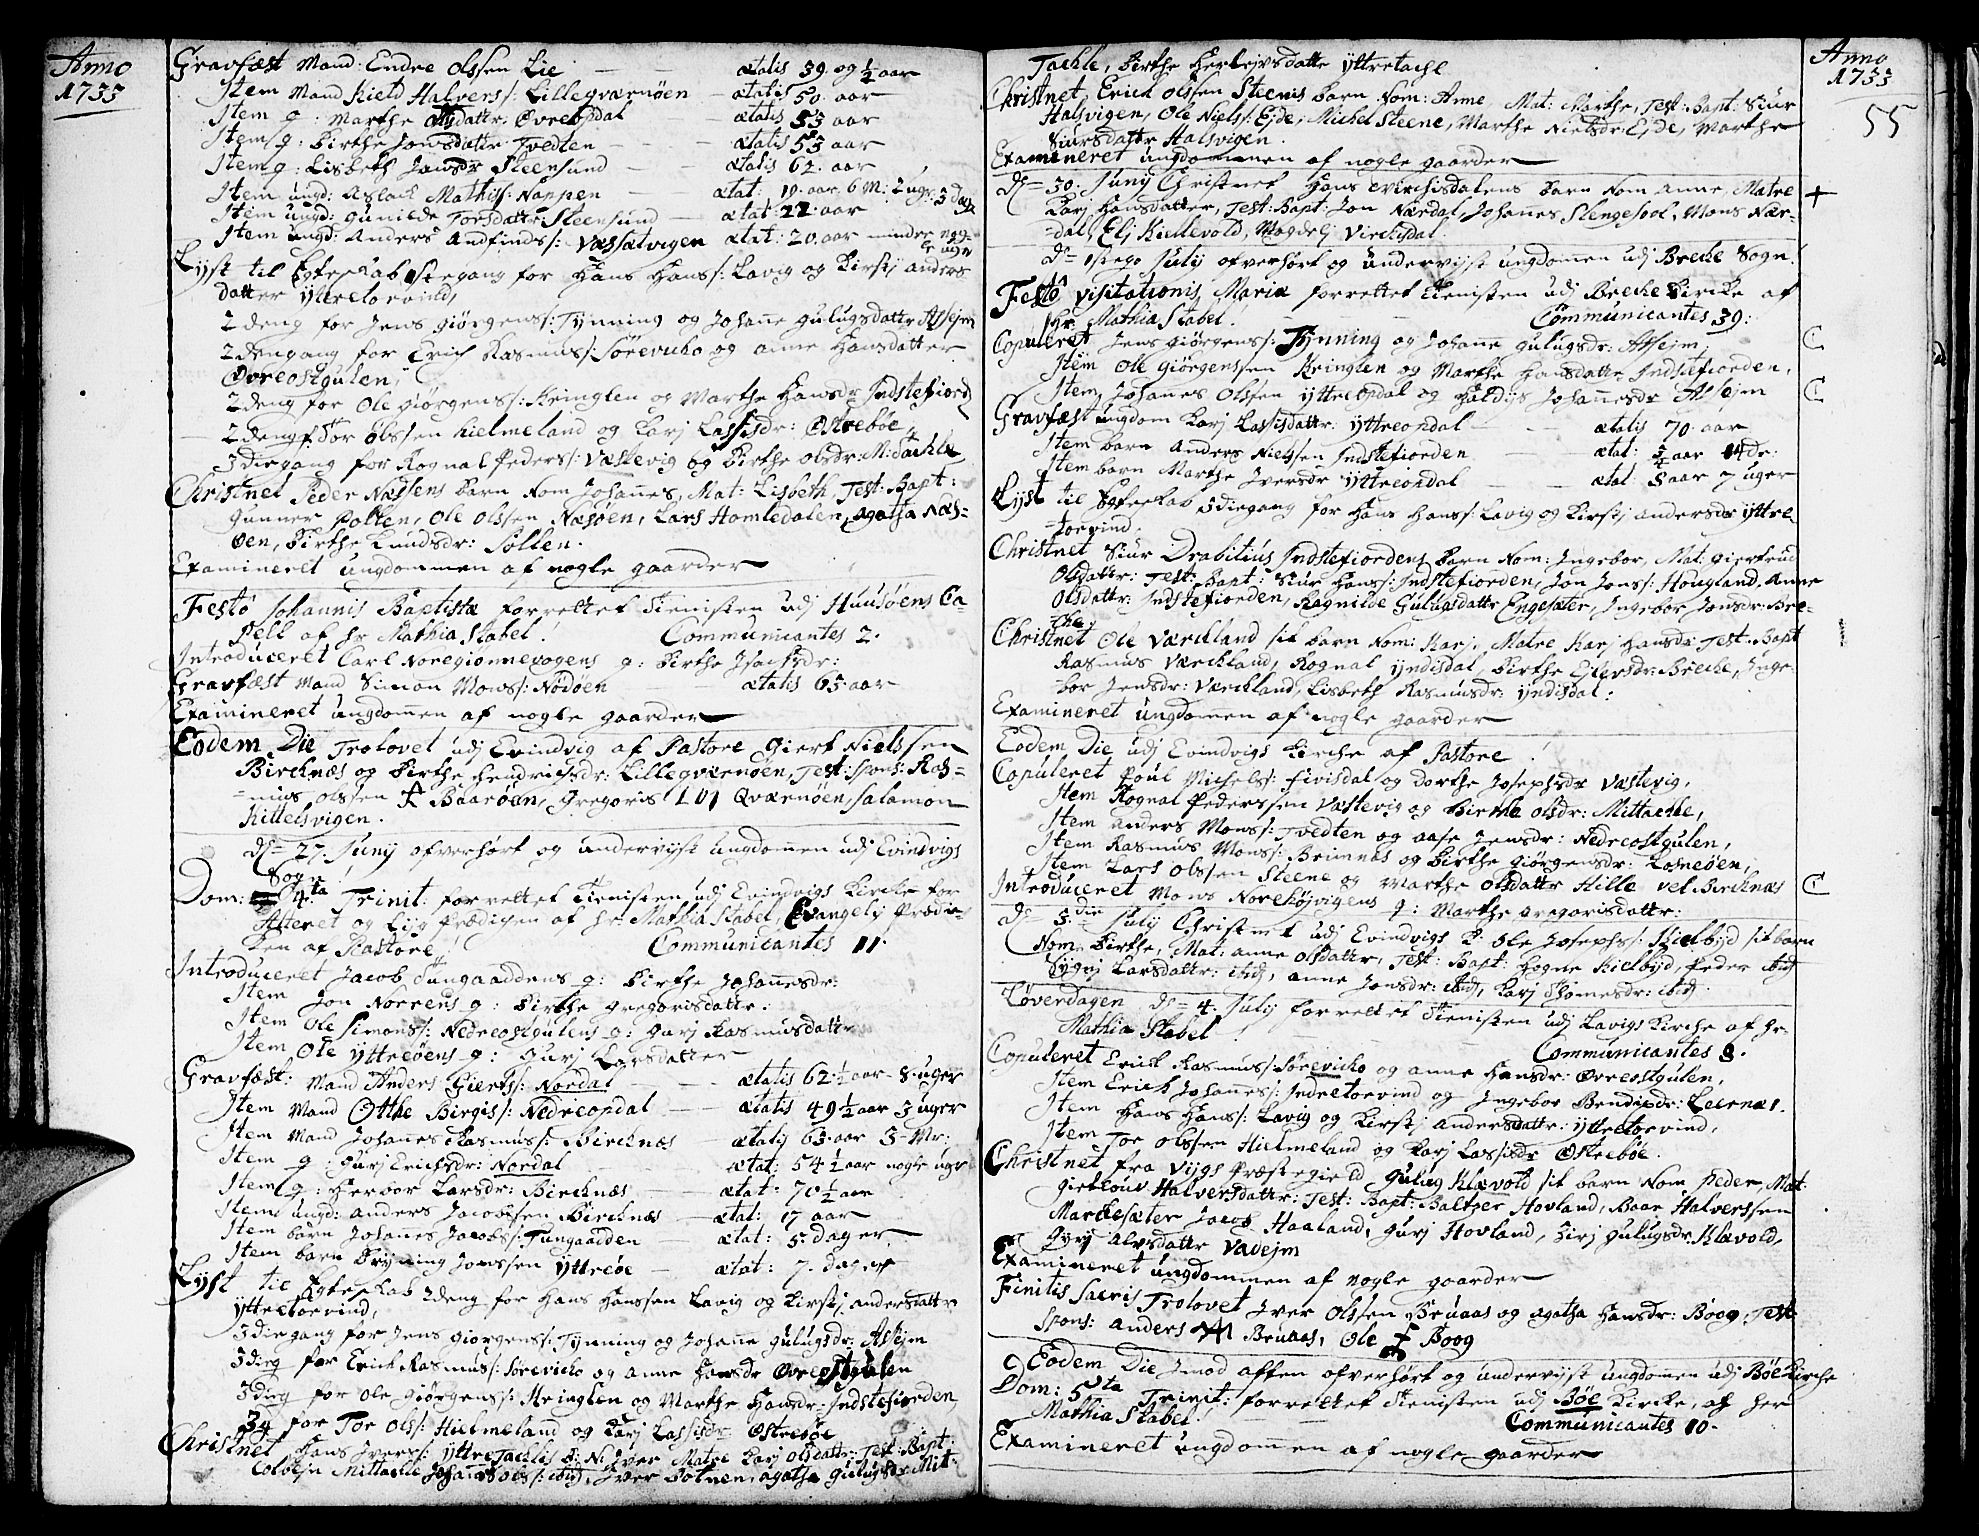 Anno
1733
Gravfæst Mand: Endre Olssen Lie — ætatis 39. og ½ aar
Item Mand Kield Halvers/: Lillegværnøen — ætatis 50. aar
Item q: Marthe Olsdattr: Øvreopdal — ætatis 53 aar
Item q: Birthe Jonsdattr: Tvedten — ætatis 53 aar
Item q: Lisbeth Jonsdr Steensund — ætatis 62. aar
Item ungd: Aslach Mathis/: Nappen — ætat: 19. aar. 6 M: 2 ugr: 3 dag
Item ungd: Gunilde Torsdattr: Steensund — ætat 22. aar
Item ungd: Anders Andfinds/: Væssetvigen ætat: 20. aar minder nog-
le uger
Lyst til Egteskab 1stegang for Hans Hans/: Lavig og Kirstj Anders
datter Yttretorvind,
2 deng for Jens Giørgens/: Tynning og Johane Gulugsdattr Assejm
2 dengang for Erich Rasmus/: Sørevicho og Anne Hansdatter
Øvreostgulen,
2 deng for Ole Giørgens/: Kringlen og Marthe Hansdr Indstefiord
2 deng f. Tor Olssen Hielmeland og Karj Lassisdr: Østrebøe,
3 diegang for Rognal Peders/: Væstevig og Birthe Olsdr: M:Tachle
Christnet Peder Næssens barn Nom Johanes, Mat: Lisbeth, Test: Bapt:
Gunner Pollen, Ole Olssen Næsøen, Lars Homledalen, Agatha Næs-
øen, Birthe Knudsdr: Sollen.
Examineret ungdommen af nogle gaarder
Festo Johannis Baptistæ forrettet Tienisten udj Huusøens Ca-
pell af hr Mathia Stabel! Communicantes 2.
Introduceret Carl Noregiønnepogens q: Birthe Isachsdr:
Gravfæst Mand Simon Mons/: Nødøen ætatis 65. aar
Examineret ungdomen af nogle gaarder
Eodem Die Trolovet udj Evindvig af Pastore Giert Nielssen
Bircknæs og Birthe Hendrichsdr: Lillegværnøen, Test: Spons: Ras=
=mus Olssen Baarøen, Gregoris Qværnøen, Salamon
Kittelsvigen.
d= 27 Junij ofverhørt og undervijst ungdomen udj Evindvigs
Sogn!
Dom: 4ta Trinit: forrettet Tienisten udj Evindvigs Kircke for
Alteret og Lijg Prædigen af hr. Mathia Stabel, Evangelij Prædi-
ken af Pastore! Communicantes 11.
Introduceret Jacob Tungaaddens q: Birthe Johanesdr:
Item Jon Norrens q: Birthe Gregorisdattr:
Item Ole Simons/: Nedreostgulens q: Gurj Rasmusdattr
Item Ole Yttreøens q: Gurj Larsdatter
Gravfæst: Mand Anders Gierts/: Nordal — ætatis 62 ½ aar 8 uger
Item Mand Otthe Birgis/: Nedreopdal — ætatis 49 ½ aar 3 uger
Item Mand Johanes Rasmus/: Bircknæs — ætatis 63. aar 3 Mr:
Item q: Gurj Erichsdr: Nordal — ætat: 54 ½ aar nogle ugr
Item q: Herbor Larsdr: Bircknæs — ætat: 70 ½ aar
Item ungd: Anders Jacobssen Bircknæs — ætat: 17 aar
Item barn Johanes Jacobs/: Tungaadden — ætat: 5 dager
Item barn Brynning Jonssen Yttreøe — ætat: 7. dager
Lyst til Egteskab 2deng for Hans Hanssen Lavig og Kirstj Andersdattr
Yttretorvind,
3 diegang for Jens Giørgens/: Tynning og Johane Gulugsdr: Assejm
3 dieg for Erich Rasmus/: Sørevicho og Anne Hansdr Øvreostgulen
3 dieg for Ole Giørgens/: Kringlen og Marthe Hansdr: Indstefiorden
3g for Tor Ols/: Hielmeland og Karj Lassisdr: Østrebøe
Christnet Hans Ivers/: YttreTachlis B: N: Iver Matre Karj Olsdattr: Test: Bapt:
Colbejn Mittachle Johanes Ols/: ibid, Iver Botnen, Agatha Gulugsdr Mit-
Tachle, Birthe Herlejvsdatte Yttretachl
Christnet Erich Olssen Steenis barn Nom: Anne, Mat: Marthe, Test: Bapt: Siur
Halsvigen, Ole Niels/: Ejde, Michel Steene, Marthe Nielsdr: Ejde, Marthe
Siursdattr Halsvigen.
Examineret ungdommen af nogle gaarder
d= 30. Junij Christnet Hans Virchisdalens barn Nom Anne, Matre
Karj Hansdatter, Test: Bapt: Jon Nærdal, Johanes Slengesool, Mons Nær-
=dal, Elj Kiellevold, Magdelj Virchisdal.
d= 1stego Julij ofverhørt og undervijst ungdomen udj Breche Sogn.
Festô Visitationis Mariæ forrettet Tienisten udj Breche Kircke af
Hr. Mathia Stabel! Communicantes 39:
Copuleret Jens Giørgens/: Tynning og Johane Gulugsdr: Assejm,
Item Ole Giørgenssen Kringlen og Marthe Hansdattr Indstefiorden,
Item Johanes Olssen Yttreopdal og Haldijs Johanesdr Assejm
Gravfæst ungdom Karj Lassisdattr: Yttreopdal — ætatis 70. aar
Item barn Anders Nielssen Indstefiorden — ætat: ¾ aar 14 dr:
Item barn Marthe Iversdr Yttreopdal — ætat: 8 aar 7 uger
Lyst til Egteskab 3diegang for Hans Hans/: Lavig og Kirstj Andersdr Yttre-
=torvind.
Christnet Siur Drabitius Indstefiordens barn Nom: Ingebor, Mat: Giertrud
Olsdattr: Test: Bapt: Siur Hans/: Indstefiorden, Jon Jons/: Hougland, Anne
Olsdattr: Indstefiorden, Ragnilde Gulugsdattr Engesæter, Ingebor Jonsdr: Bre-
che.
Christnet Ole Værckland sit barn Nom: Karj, Matre Karj Hansdr Test: Bapt
Rasmus Værckland, Rognal Yndisdal, Birthe Ejlersdr: Breche, Inge-
bor Jensdr: Værckland, Lisbeth Rasmusdr: Yndisdal.
Examineret ungdomen af nogle gaarder
Eodem Die udj Evindvigs Kirche af Pastore!
Copuleret Poul Michels/: Fivisdal og Dorthe Josephsdr Væstevig,
Item Rognal Pederssen Væstevig og Birthe Olsdr: Mittachle,
Item Anders Mons/: Tvedten og Aase Jensdr: Nedreostgulen,
Item Rasmus Mons/: Brimnæs og Birthe Giørgensdr: Losneøen,
Item Lars Olssen Steene og Marthe Olsdattr Hille vel Bircknæs
Introduceret Mons Norehøjvigens q: Marthe Gregorisdattr:
d= 3die Julij Christnet udj Evindvigs K: Ole Josephs/: Kielbijd sit barn
Nom: Birthe, Mat: Anne Olsdattr, Test: Bapt: Hogne Kielbijd, Peder ibid
Sygnj Larsdattr: ibid, Anne Jonsdr: ibid, Karj Thomesdr: ibid.
Løverdagen d= 4. Julij forrettet Tienisten udj Lavigs Kirche af hr.
Mathia Stabel! Communicantes 8.
Copuleret Erick Rasmus/: Sørevicho og Anne Hansdr: Øvreostgulen,
Item Erich Johanes/: Indretorvind og Ingebor Bendixdr: Leernæs.
Item Hans Hans/: Lavig og Kirstj Andersdattr: Yttretorvind,
Item Tor Olssen Hielmeland og Karj Lassisdr Østrebøe.
Christnet fra Vijgs Præstegield Gulug Klævold sit barn Nom Peder, Mat:
Giertouv Halversdattr: Test: Bapt: Baltzer Hovland, Baar Halverssen
Marckesæter Jacob Haaland, Gurj Hovland, Zirj Gulugsdr Klævold,
Gyrj Alvsdattr Vadejm
Examineret ungdommen af nogle gaarder
Finitis Sacris Trolovet Iver Olssen Bruaas og Agatha Hansdr: Boog, Test
Spons: Anders Bruaas, Ole Boog
Eodem Die Imod aften ofverhørt og undervijst ungdomen udj Bøe Kirche
Dom: 5ta Trinit: forrettet Tienisten udj Bøe Kircke, af Her
Mathia Stabel! Communicantes 10.
Examineret ungdommen af nogle gaarder
Anno
1733
55